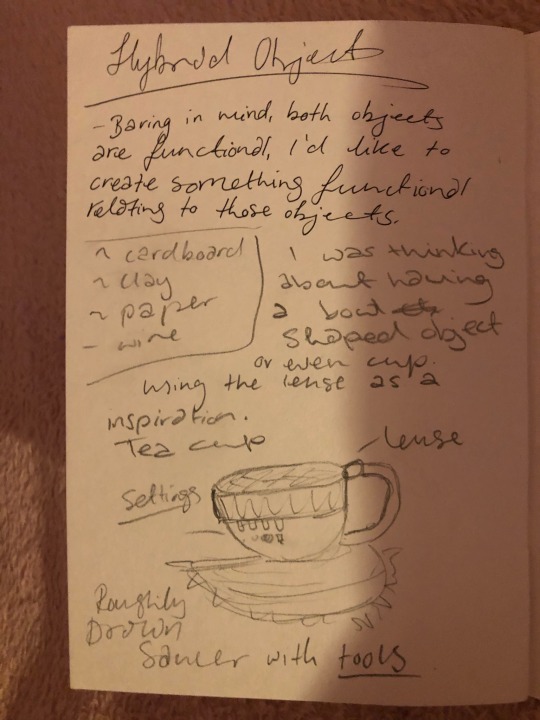 Hybrid Object
- Baring in mind, both objects
are functional, I'd like to
create something functional
relating to those objects.
~ cardboard
~ clay
~ paper
- wire
I was thinking
about having
a bowl
shaped object
or even cup.
using the lense as a
inspiration.
Tea cup
lense
Settings
Roughly
Drawn
Saucer with tools